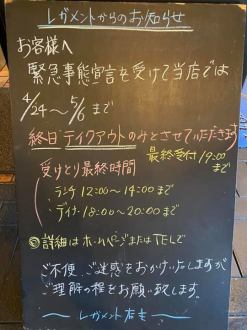 レガメントからのお知らせ
お客様へ
緊急事態宣言を受けて当店では
4/24〜5/6まで
終日テイクアウトのみとさせていただきます
最終受付19:00まで
受けとり最終時間
ランチ 12:00〜14:00まで
ディナー 18:00〜20:00まで
詳細はホームページまたはTELで
ご不便、ご迷惑をおかけいたしますが
ご理解の程をお願い致します。
〜レガメント店主〜